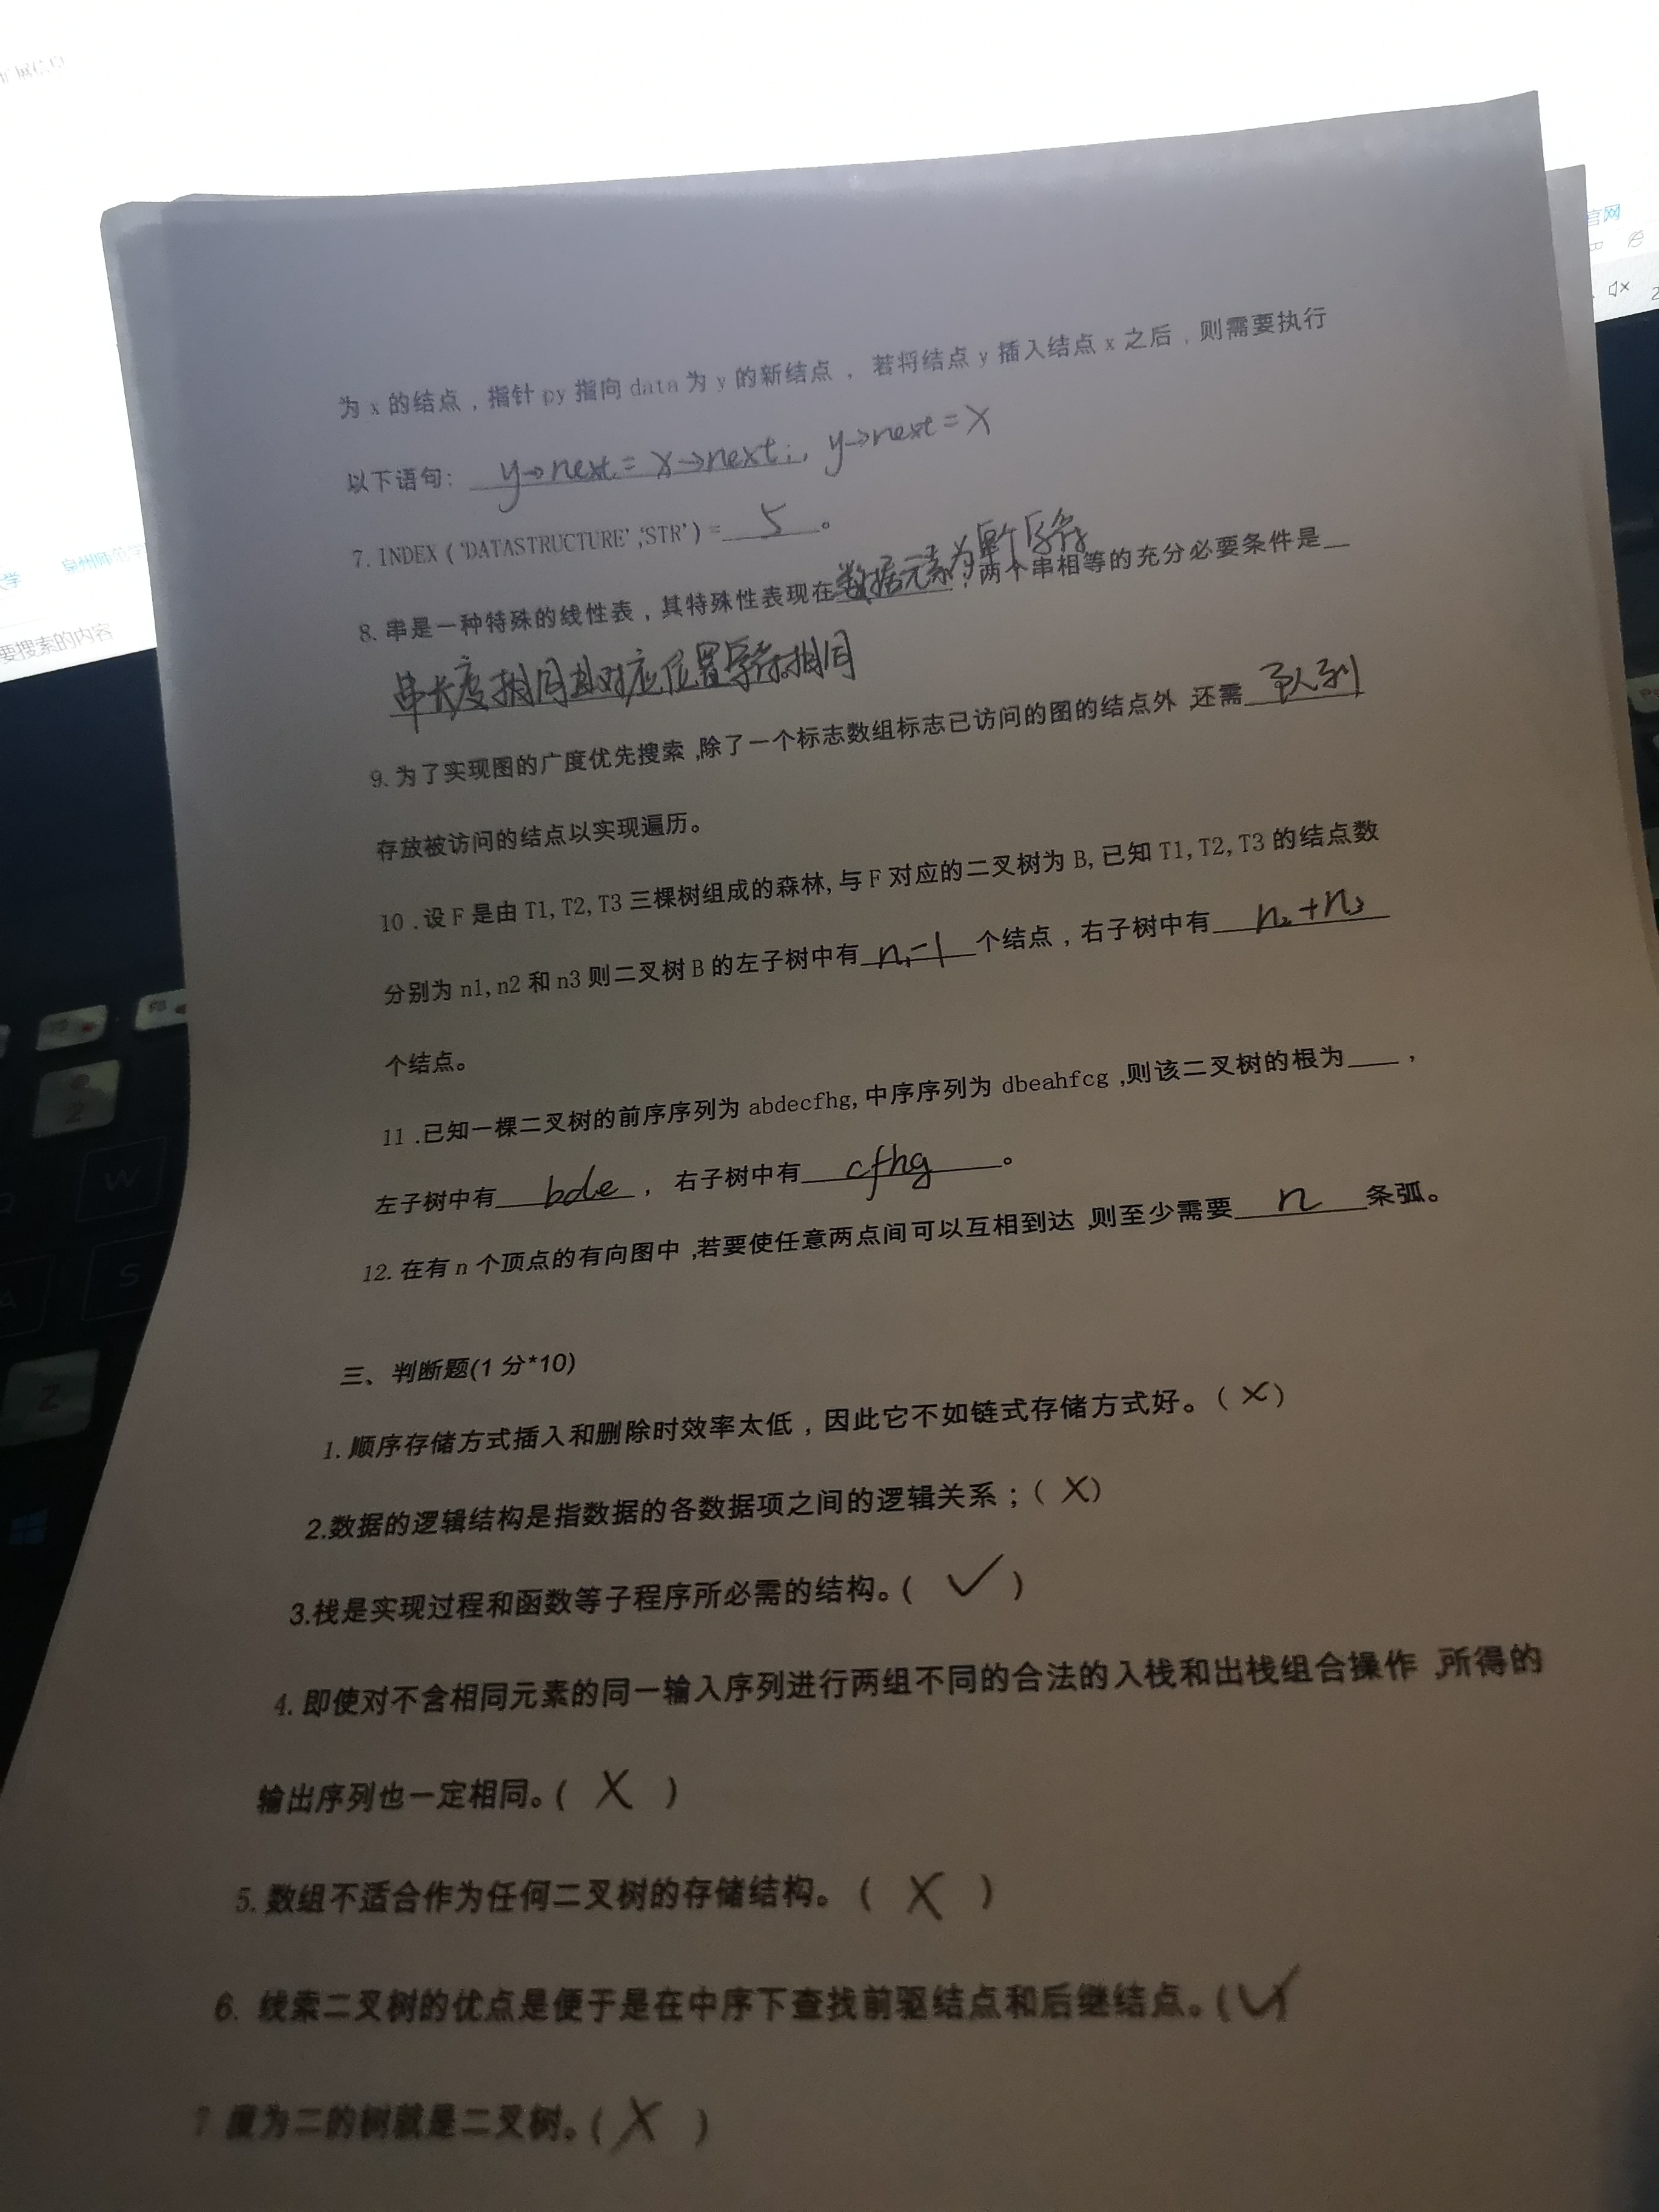 官网
要搜索的内容
为 x 的结点，指针 py 指向 data 为 y 的新结点，若将结点 y 插入结点 x 之后，则需要执行
以下语句： y→next = x→next; y→next = x
7. INDEX（'DATASTRUCTURE','STR'）= 5 。
8. 串是一种特殊的线性表，其特殊性表现在数据元素为单个字符，两个串相等的充分必要条件是
串长度相同且对应位置字符相同
9. 为了实现图的广度优先搜索,除了一个标志数组标志已访问的图的结点外,还需 队列
存放被访问的结点以实现遍历。
10 .设 F 是由 T1,T2,T3 三棵树组成的森林,与 F 对应的二叉树为 B,已知 T1,T2,T3 的结点数
分别为 n1,n2 和 n3 则二叉树 B 的左子树中有 n₁-1 个结点，右子树中有 n₂+n₃
个结点。
11 .已知一棵二叉树的前序序列为 abdecfhg,中序序列为 dbeahfcg,则该二叉树的根为____，
左子树中有 bde ，右子树中有 cfhg 。
12. 在有 n 个顶点的有向图中,若要使任意两点间可以互相到达,则至少需要 n 条弧。
三、判断题(1 分*10)
1. 顺序存储方式插入和删除时效率太低，因此它不如链式存储方式好。（×）
2.数据的逻辑结构是指数据的各数据项之间的逻辑关系；（×）
3.栈是实现过程和函数等子程序所必需的结构。（ ✓ ）
4. 即使对不含相同元素的同一输入序列进行两组不同的合法的入栈和出栈组合操作,所得的
输出序列也一定相同。（ × ）
5. 数组不适合作为任何二叉树的存储结构。（ × ）
6. 线索二叉树的优点是便于是在中序下查找前驱结点和后继结点。（✓）
7 度为二的树就是二叉树。（ × ）